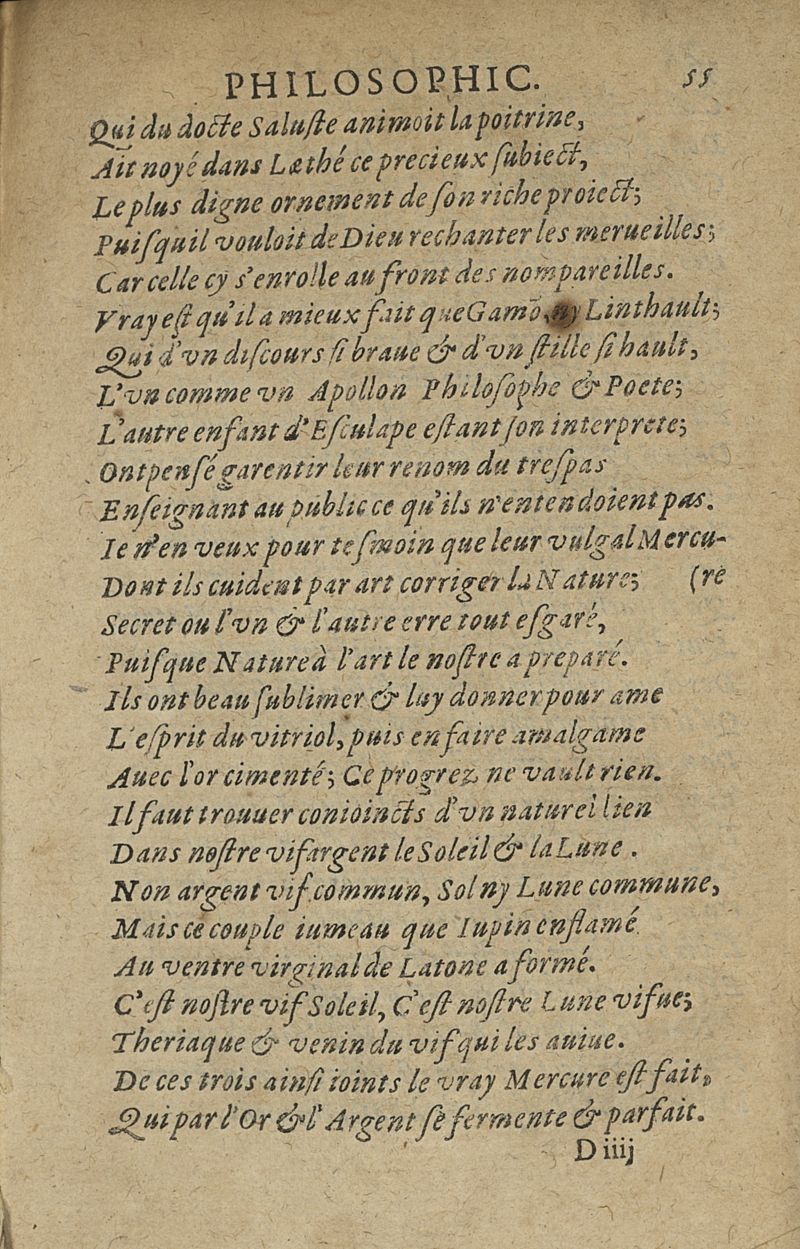 PHILOSOPHIC. 55
Qui du docte Saluſte animoit la poitrine,
Ait noyé dans Læthé ce precieux ſubiect,
Le plus digne ornement de ſon riche proiect;
Puiſquil vouloit de Dieu rechanter les merueilles;
Car celle cy s'enrolle au front des nompareilles.
Vray eſt qu'il a mieux fait que Gamō, ny Linthault;
Qui d'vn diſcours ſi braue & d'vn ſtille ſi hault,
L'vn comme vn Apollon Philoſophe & Poete;
L'autre enfant d'Eſculape eſtant ſon interprete;
Ont penſé garentir leur renom du treſpas
Enſeignant au public ce qu'ils n'entendoient pas.
Ie n'en veux pour teſmoin que leur vulgal Mercu-
Dont ils cuident par art corriger la Nature; (re
Secret ou l'vn & l'autre erre tout eſgaré,
Puiſque Nature à l'art le noſtre a preparé.
Ils ont beau ſublimer & luy donner pour ame
L'eſprit du vitriol, puis en faire amalgame
Auec l'or cimenté; Ce progrez ne vault rien.
Il faut trouuer conioincts d'vn naturel lien
Dans noſtre vifargent le Soleil & la Lune.
Non argent vif commun, Sol ny Lune commune,
Mais ce couple iumeau que Iupin enflamé
Au ventre virginal de Latone a formé.
C'eſt noſtre vif Soleil, C'eſt noſtre Lune vifue;
Theriaque & venin du vif qui les auiue.
De ces trois ainſi ioints le vray Mercure eſt fait,
Qui par l'Or & l'Argent ſe fermente & parfait.
D iiij